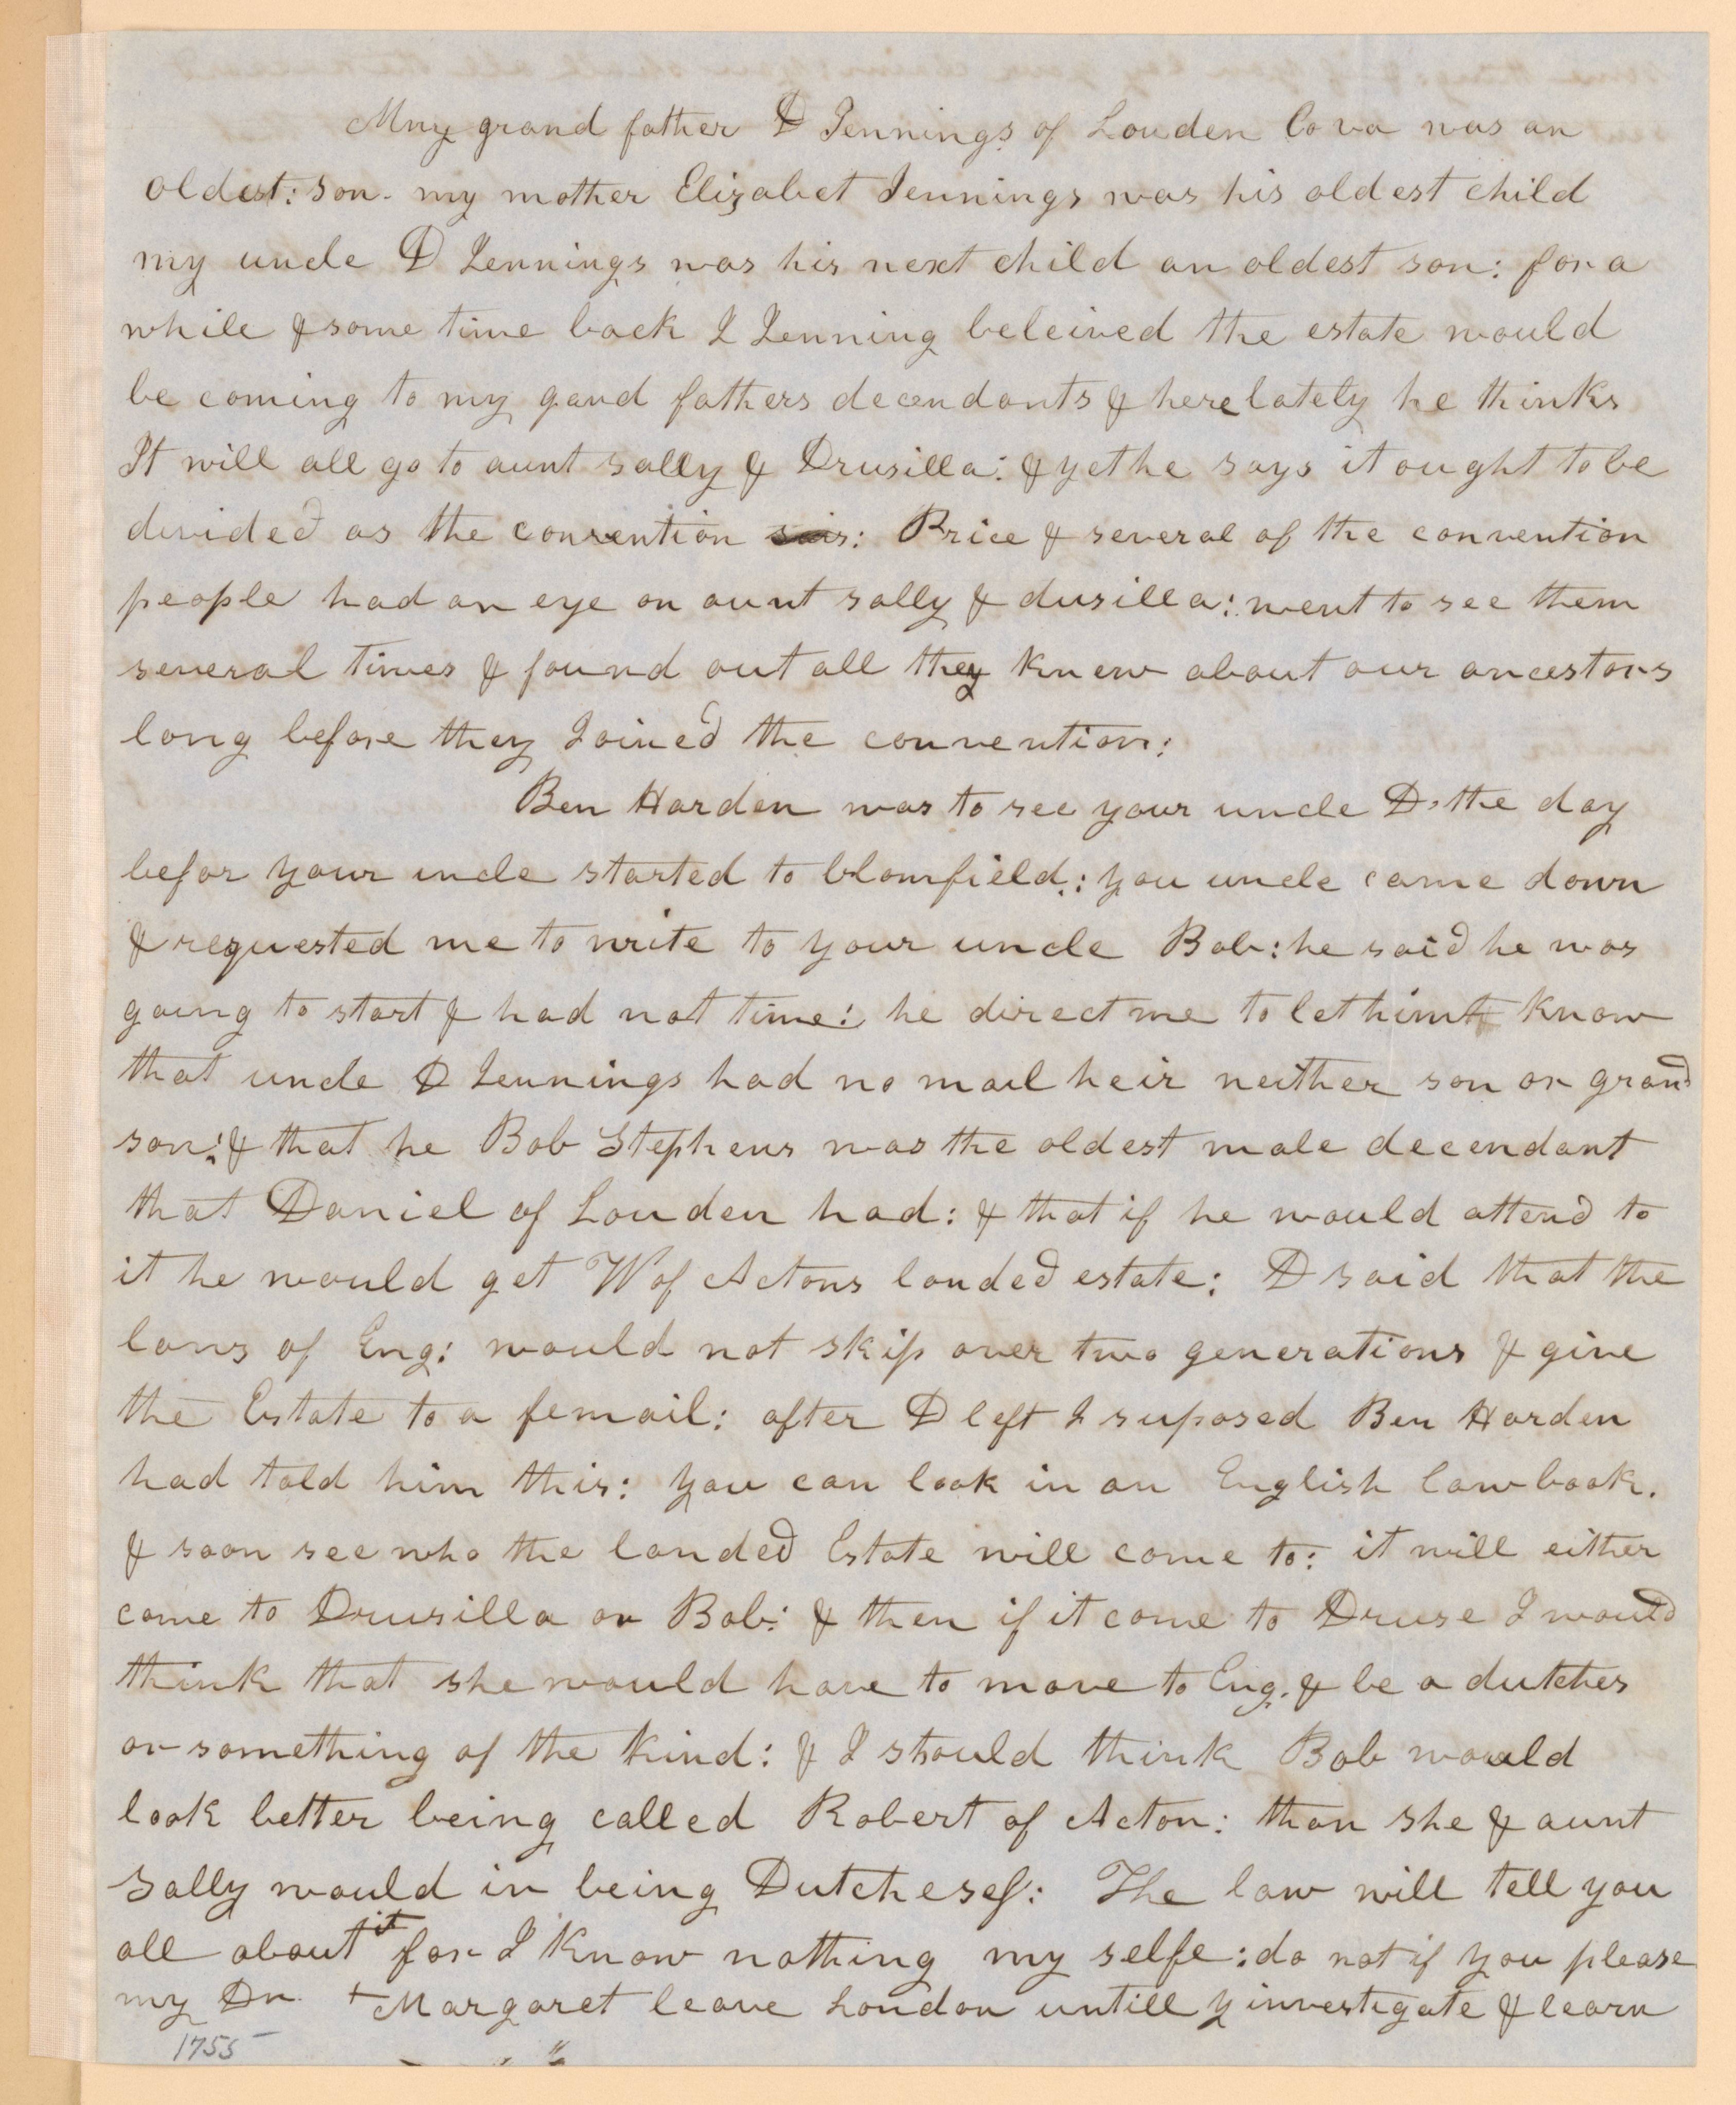 Mny grand father D Jennings of Louden Co va was an
oldest: son. my mother Elizabet Jennings was his oldest child
my uncle D Jennings was his next child an oldest son: for a
while & some time back I Jenning beleived the estate would
be coming to my gand fathers decendants & here lately he thinks
It will all go to aunt sally & Drusilla: & yet he says it ought to be
divided as the convention sais: Price & several of the convention
people had an eye on aunt sally & dusilla: went to see them
several times & found out all they knew about our ancestors
long before they Joined the convention:
Ben Harden was to see your uncle D. the day
befor your uncle started to blomfield: you uncle came down
& requested me to write to your uncle Bob: he said he was
going to start & had not time: he direct me to let him know
that uncle D Jennings had no mail heir neither son or grand
son: & that he Bob Stephens was the oldest male decendant
that Daniel of Louden had: & that if he would attend to
it he would get W of Actons landed estate: D said that the
laws of Eng: would not skip over two generations & give
the Estate to a femail: after D left I suposed Ben Harden
had told him this: you can look in an English law book.
& soon see who the landed Estate will come to: it will either
come to Drusilla or Bob: & then if it come to Druse I would
think that she would have to move to Eng. & be a dutches
or something of the kind: & I should think Bob would
look better being called Robert of Acton: than she & aunt
Sally would in being Dutchess: The law will tell you
all about it for I know nothing my selfe: do not if you please
my Dr. + Margaret leave London untill y investigate & learn
1755